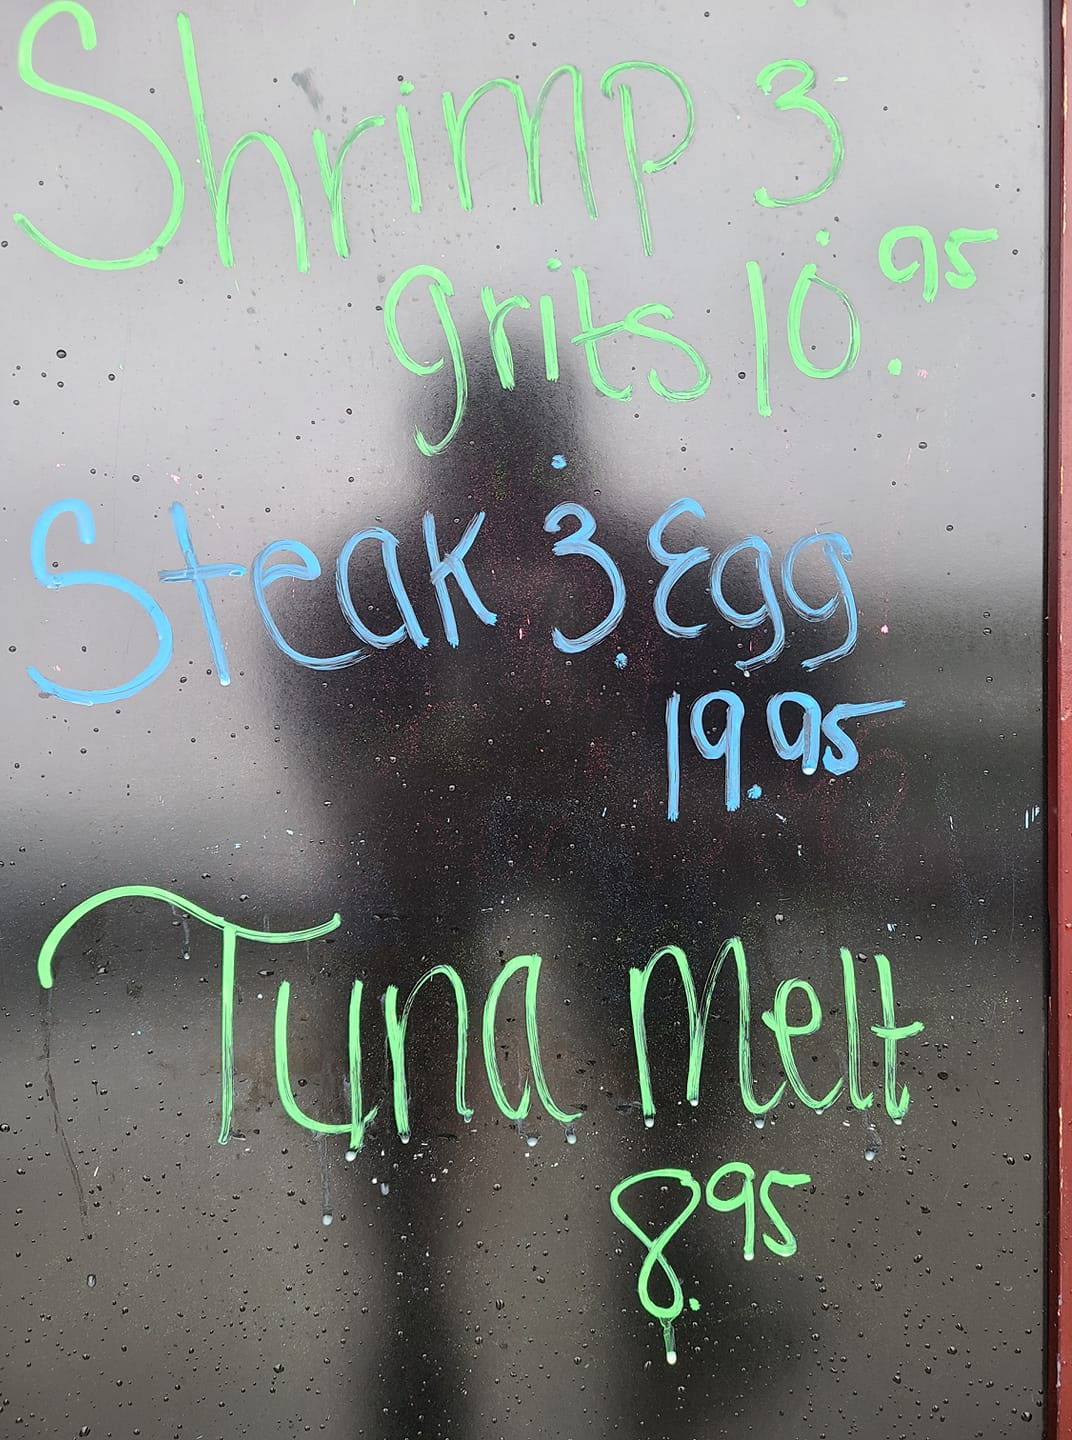 Shrimp &
grits 10.95
Steak & Egg
19.95
Tuna Melt
8.95